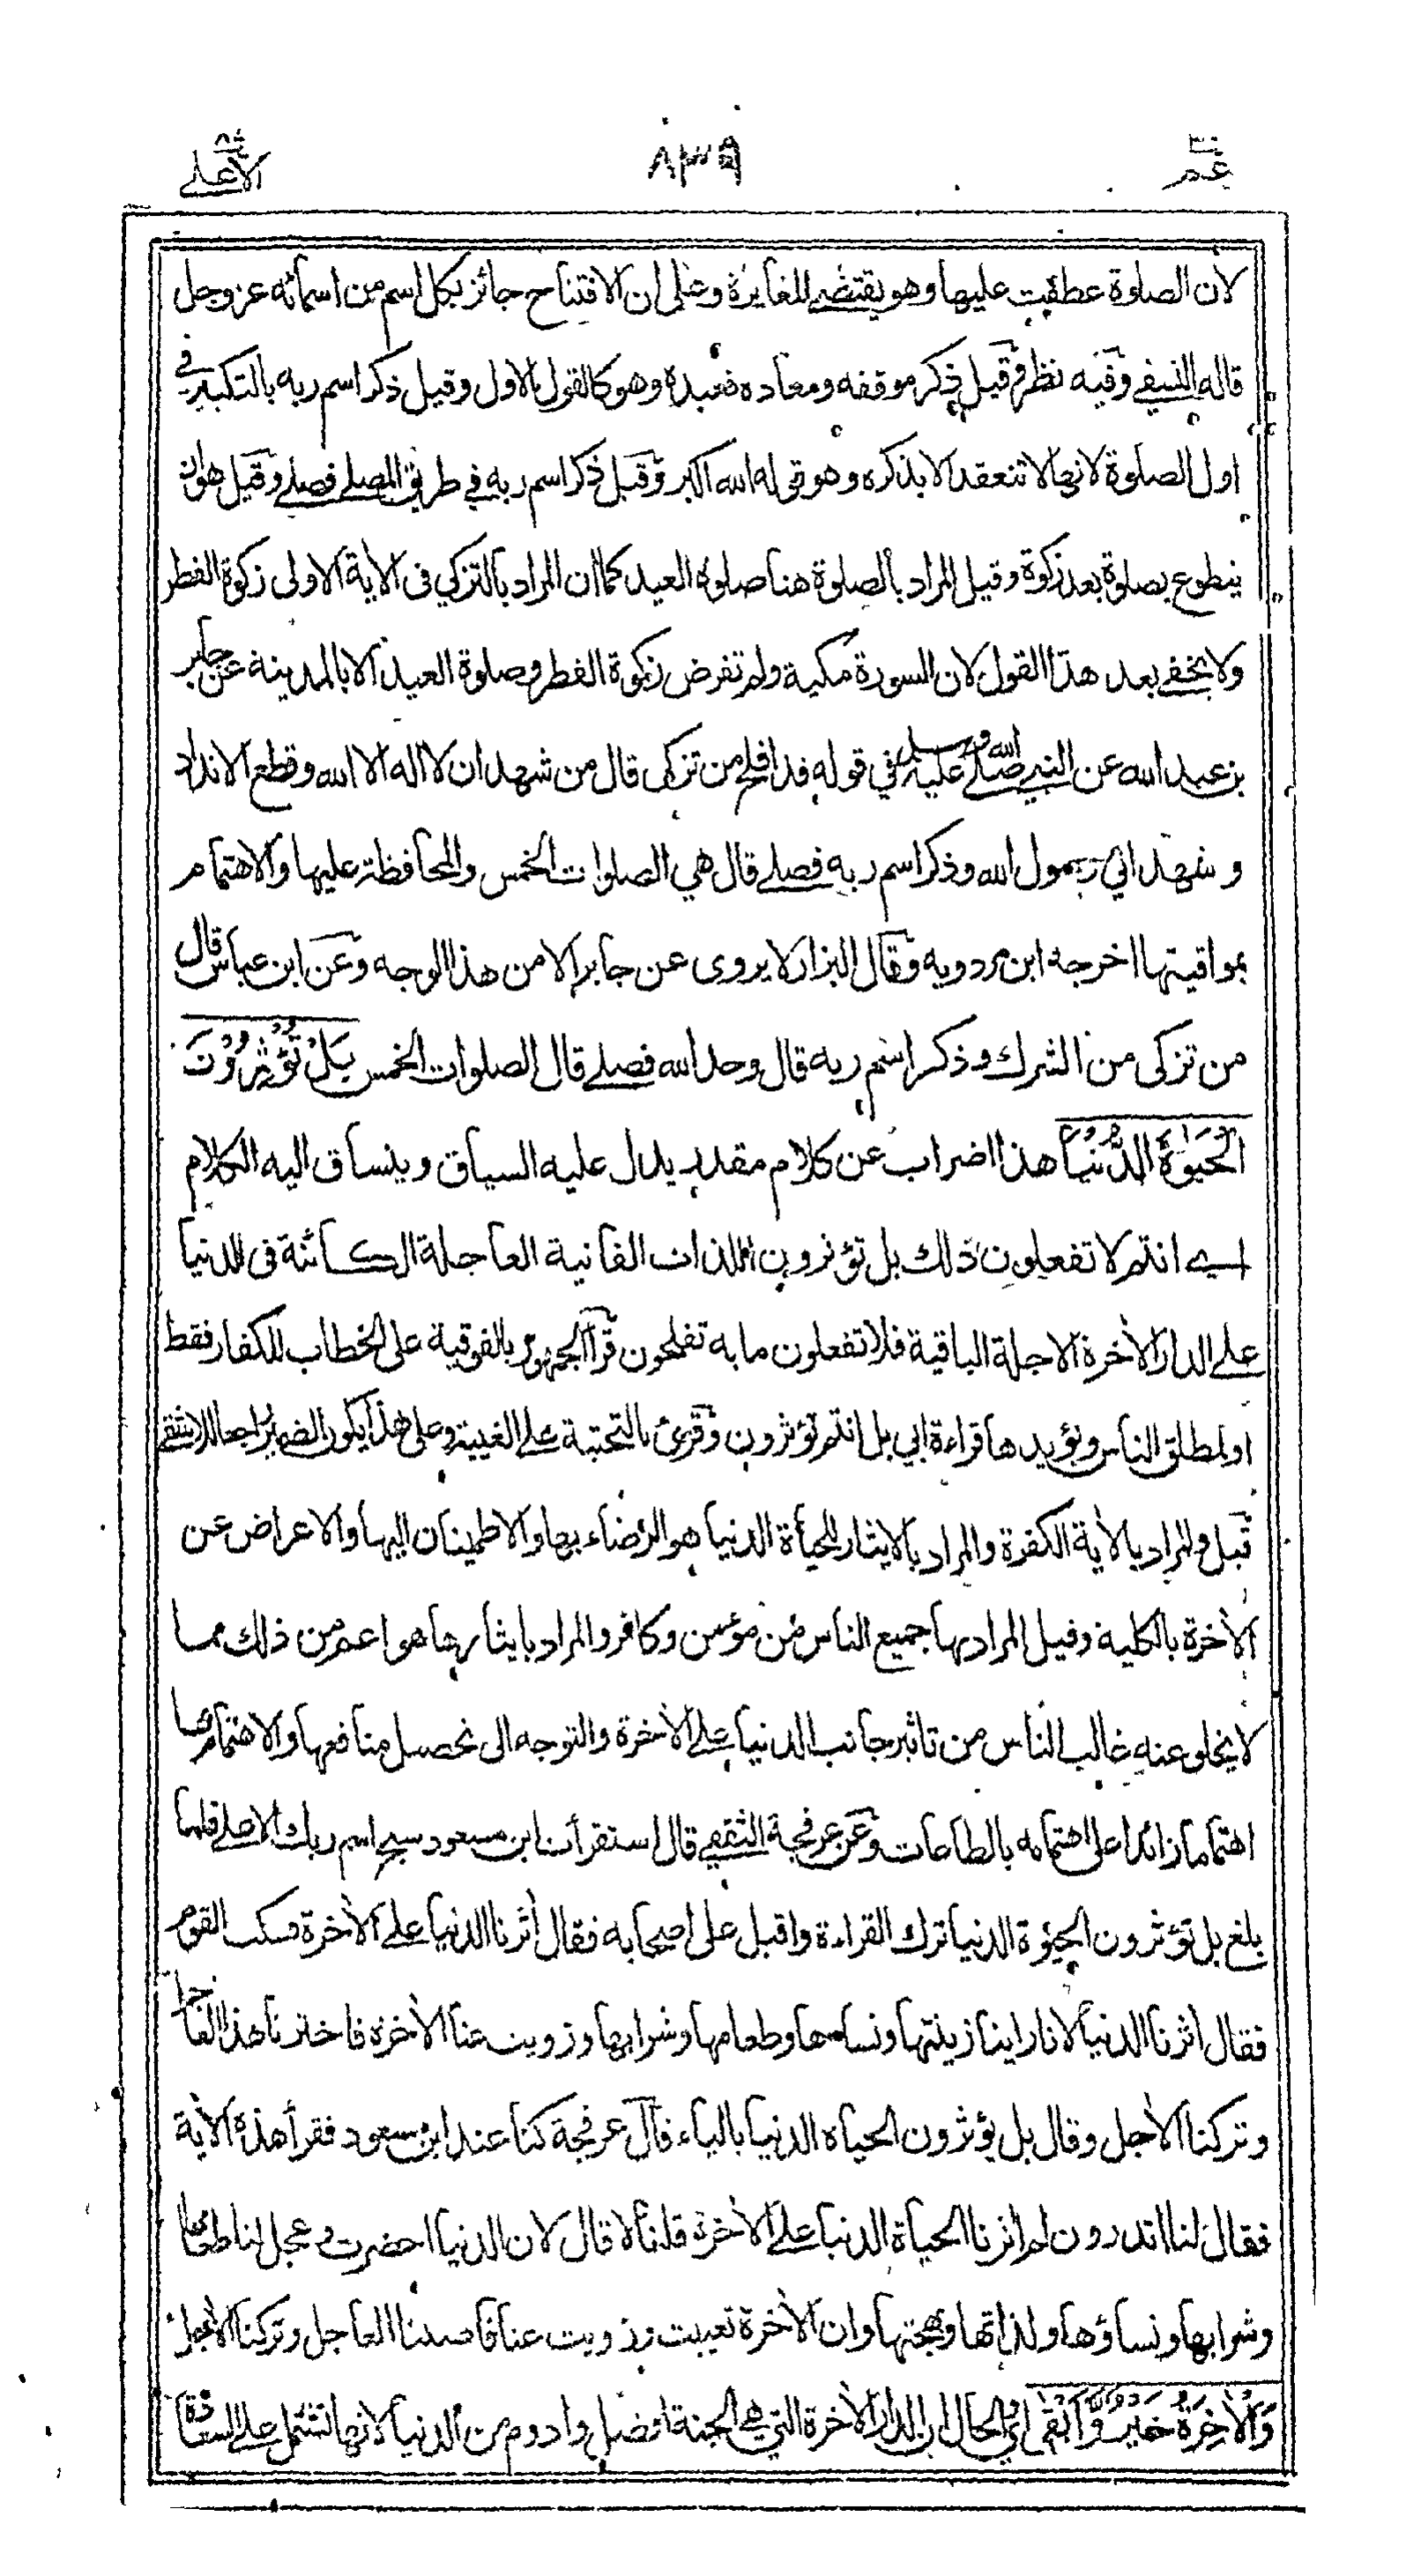 عم ٣٠
٨٣٩
الأعلى ٨٧
لان الصلوة عطفت عليها وهو يقتضے المغايرة وعلى ان الافتتاح جائز بكل اسم من اسمائه عز وجل
قاله النسفے وفيه نظر وقيل ذكر موقفه ومعاده فعبده وهو كالقول الاول وقيل ذكر اسم ربه بالتكبير في
اول الصلوة لانها لا تنعقد الا بذكره وهو قوله الله اكبر وقيل ذكر اسم ربه في طريق المصلے فصلے وقيل هو ان
يتطوع بصلوة بعد زكوة وقيل المراد بالصلوة هنا صلوة العيد كما ان المراد بالتزكي فى الاية الاولى زكوة الفطر
ولا يخفے بعد هذا القول لان السورة مكية ولم تفرض زكوة الفطر وصلوة العيد الا بالمدينة عن جابر
بن عبد الله عن النبي صلے الله عليه وسلم في قوله قد افلح من تزكى قال من شهد ان لا اله الا الله وقطع الانداد
وشهد اني رسول الله وذكر اسم ربه فصلے قال هي الصلوات الخمس والمحافظة عليها والاهتمام
بمواقيتها اخرجه ابن مردويه وقال البزار لا يروى عن جابر الا من هذا الوجه وعن ابن عباس قال
من تزكى من الشرك وذكر اسم ربه قال وحد الله فصلے قال الصلوات الخمس بَلْ تُؤْثِرُوْنَ
الْحَيٰوةَ الدُّنْيَا هذا اضراب عن كلام مقدر يدل عليه السياق وينساق اليه الكلام
اے انتم لا تفعلون ذلك بل تؤثرون اللذات الفانية العاجلة الكائنة فى الدنيا
علے الدار الأخرة الاجلة الباقية فلا تفعلون ما به تفلحون قرأ الجمهور بالفوقية على الخطاب للكفار فقط
او لمطلق الناس ويؤيدها قراءة ابي بل انتم تؤثرون وقرئ بالتحتية علے الغيبة وعلى هذا يكون الضمير راجعا للاشقے
قيل والمراد بالأية الكفرة والمراد بالايثار للحيأة الدنيا هو الرضاء بها والاطمينان اليها والاعراض عن
الأخرة بالكلية وقيل المراد بها جميع الناس من مؤمن وكافر والمراد بايثارها هو اعم من ذلك مما
لا يخلو عنه غالب الناس من تاثير جانب الدنيا علے الأخرة والتوجه الى تحصيل منافعها والاهتمام بها
اهتماما زائدا على اهتمامه بالطاعات وعن عرفجة الثقفے قال استقرأت ابن مسعود سبح اسم ربك الاعلے فلما
بلغ بل تؤثرون الحيٰوة الدنيا ترك القراءة واقبل على اصحابه فقال أثرنا الدنيا علے الأخرة فسكت القوم
فقال أثرنا الدنيا لانا راينا زينتها ونساءها وطعامها وشرابها وزويت عنا الأخرة فاخترنا هذا العاجل
وتركنا الأجل وقال بل يؤثرون الحياة الدنيا بالياء قال عرفجة كنا عند ابن مسعود فقرأ هذه الأية
فقال لنا اتدرون لم اثرنا الحياة الدنيا علے الأخرة قلنا لا قال لان الدنيا احضرت وعجل لنا طعامها
وشرابها ونساؤها ولذاتها وبهجتها وان الأخرة تغيبت وزويت عنا فاحببنا العاجل وتركنا الأجل
وَالْأٰخِرَةُ خَيْرٌ وَّاَبْقٰى اي والحال ان الدار الأخرة التي هي الجنة افضل وادوم من الدنيا لانها تشتمل علے السعادة